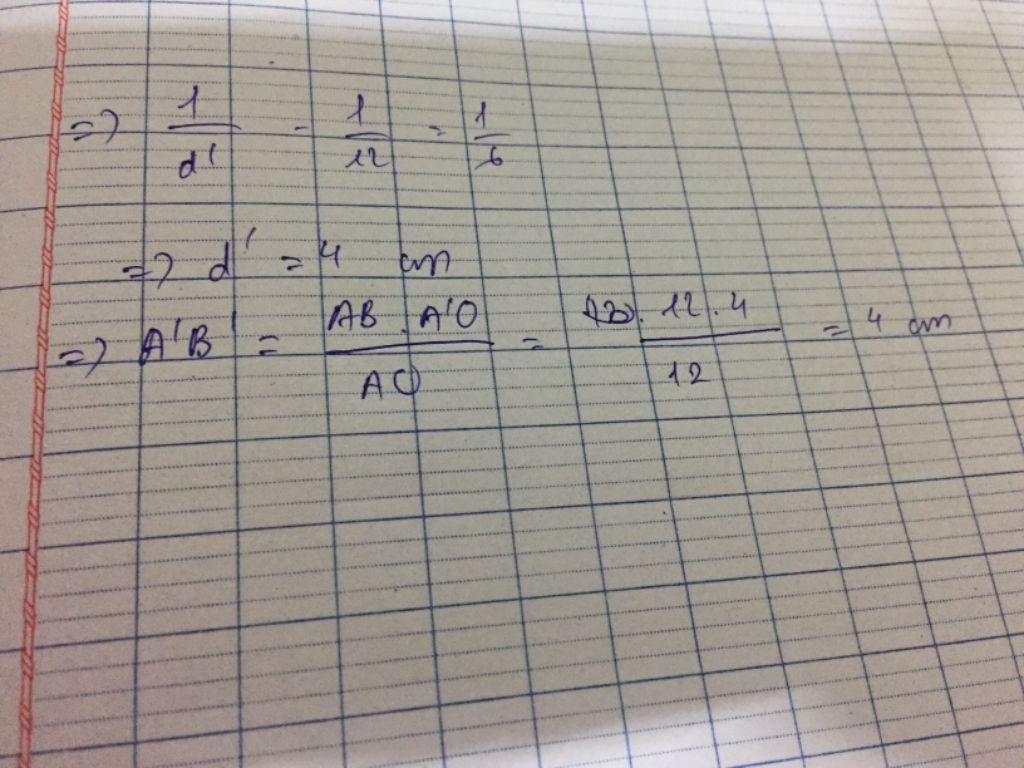 => 1/d' - 1/12 = 1/6
=> d' = 4 cm
=> A'B' = AB . A'O / AO = . 12 . 4 / 12 = 4 cm